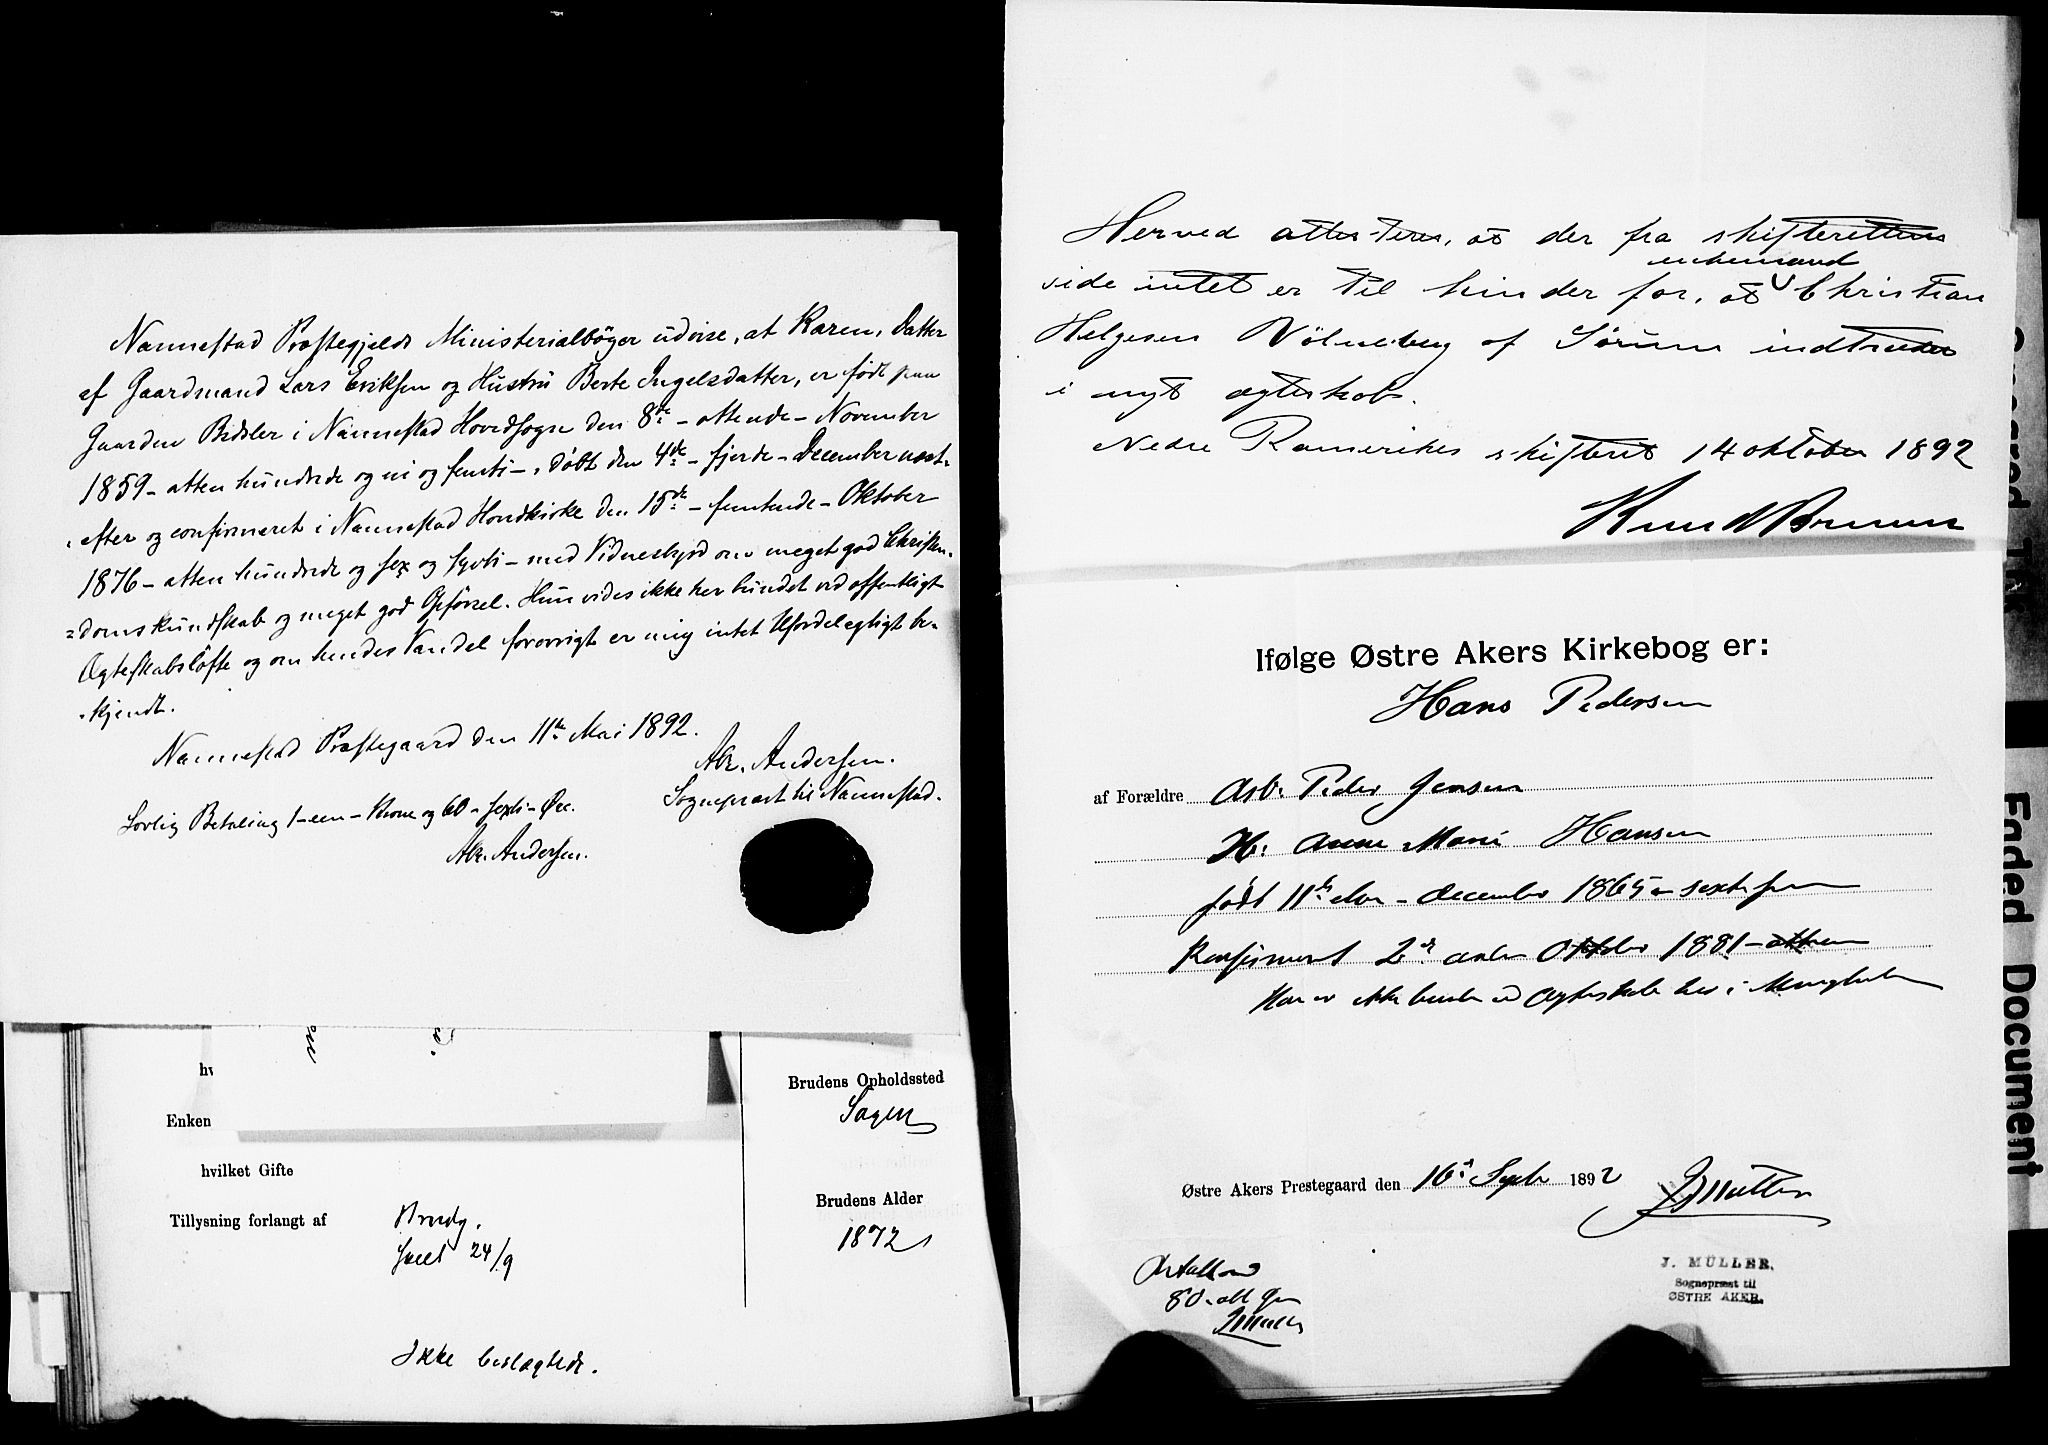 Nannestad Præstegjelds Ministerialbøger udvise, at Karen, Datter
af Gaardmand Lars Eriksen og Hustru Berte Ingelsdatter, er født paa
Gaarden Bidsler i Nannestad Hovedsogn den 8de – ottende – November
1859 – atten hundrede og ni og femti –, døbt den 4de – fjerde – December næst-
-efter og confirmeret i Nannestad Hovedkirke den 15de – femtende – Oktober
1876 – atten hundrede og sex og sytti – med Vidnesbyrd om meget god Christen-
=domskundskab og meget god Opførsel. Hun vides ikke her bundet ved offentligt
Ægteskabsløfte og om hendes Vandel forøvrigt er mig intet Ufordelagtigt be-
-kjendt.
Nannestad Præstegaard den 11te Mai 1892.
Alr. Andersen.
Sognepræst til Nannestad.
Lovlig Betaling 1 – een – Krone og 60 – sexti – Øre.
Alr. Andersen.
Enken
hvilket Gifte
Tillysning forlangt af
Brudg.
24/9
Ikke beslægtede.
Brudens Opholdssted
Sagen
Brudens Alder
1872
Herved attesteres, at der fra skifterettens
enkemand
side intet er til hinder for, at Christian
Helgesen Völneberg af Sørum indtræder
i nyt ægteskab.
Nedre Romerikes skifteret 14 oktober 1892
Knud Bruun
Ifølge Østre Akers Kirkebog er:
Hans Pedersen
af Forældre Arb. Peder Jensen
H. Anne Marie Hansen
født 11te elve – december 1865 – sextifem
Konfirmert 2den anden Oktober 1881 –
Han er ikke bunden ved Ægteskab her i Menigheden
Østre Akers Prestegaard den 16de Septb 1892
J Müller
J. MÜLLER.
Sognepræst til
ØSTRE AKER.
Betalt med
80 – otti Øre
J Müller
Ground Tint
Faded Document